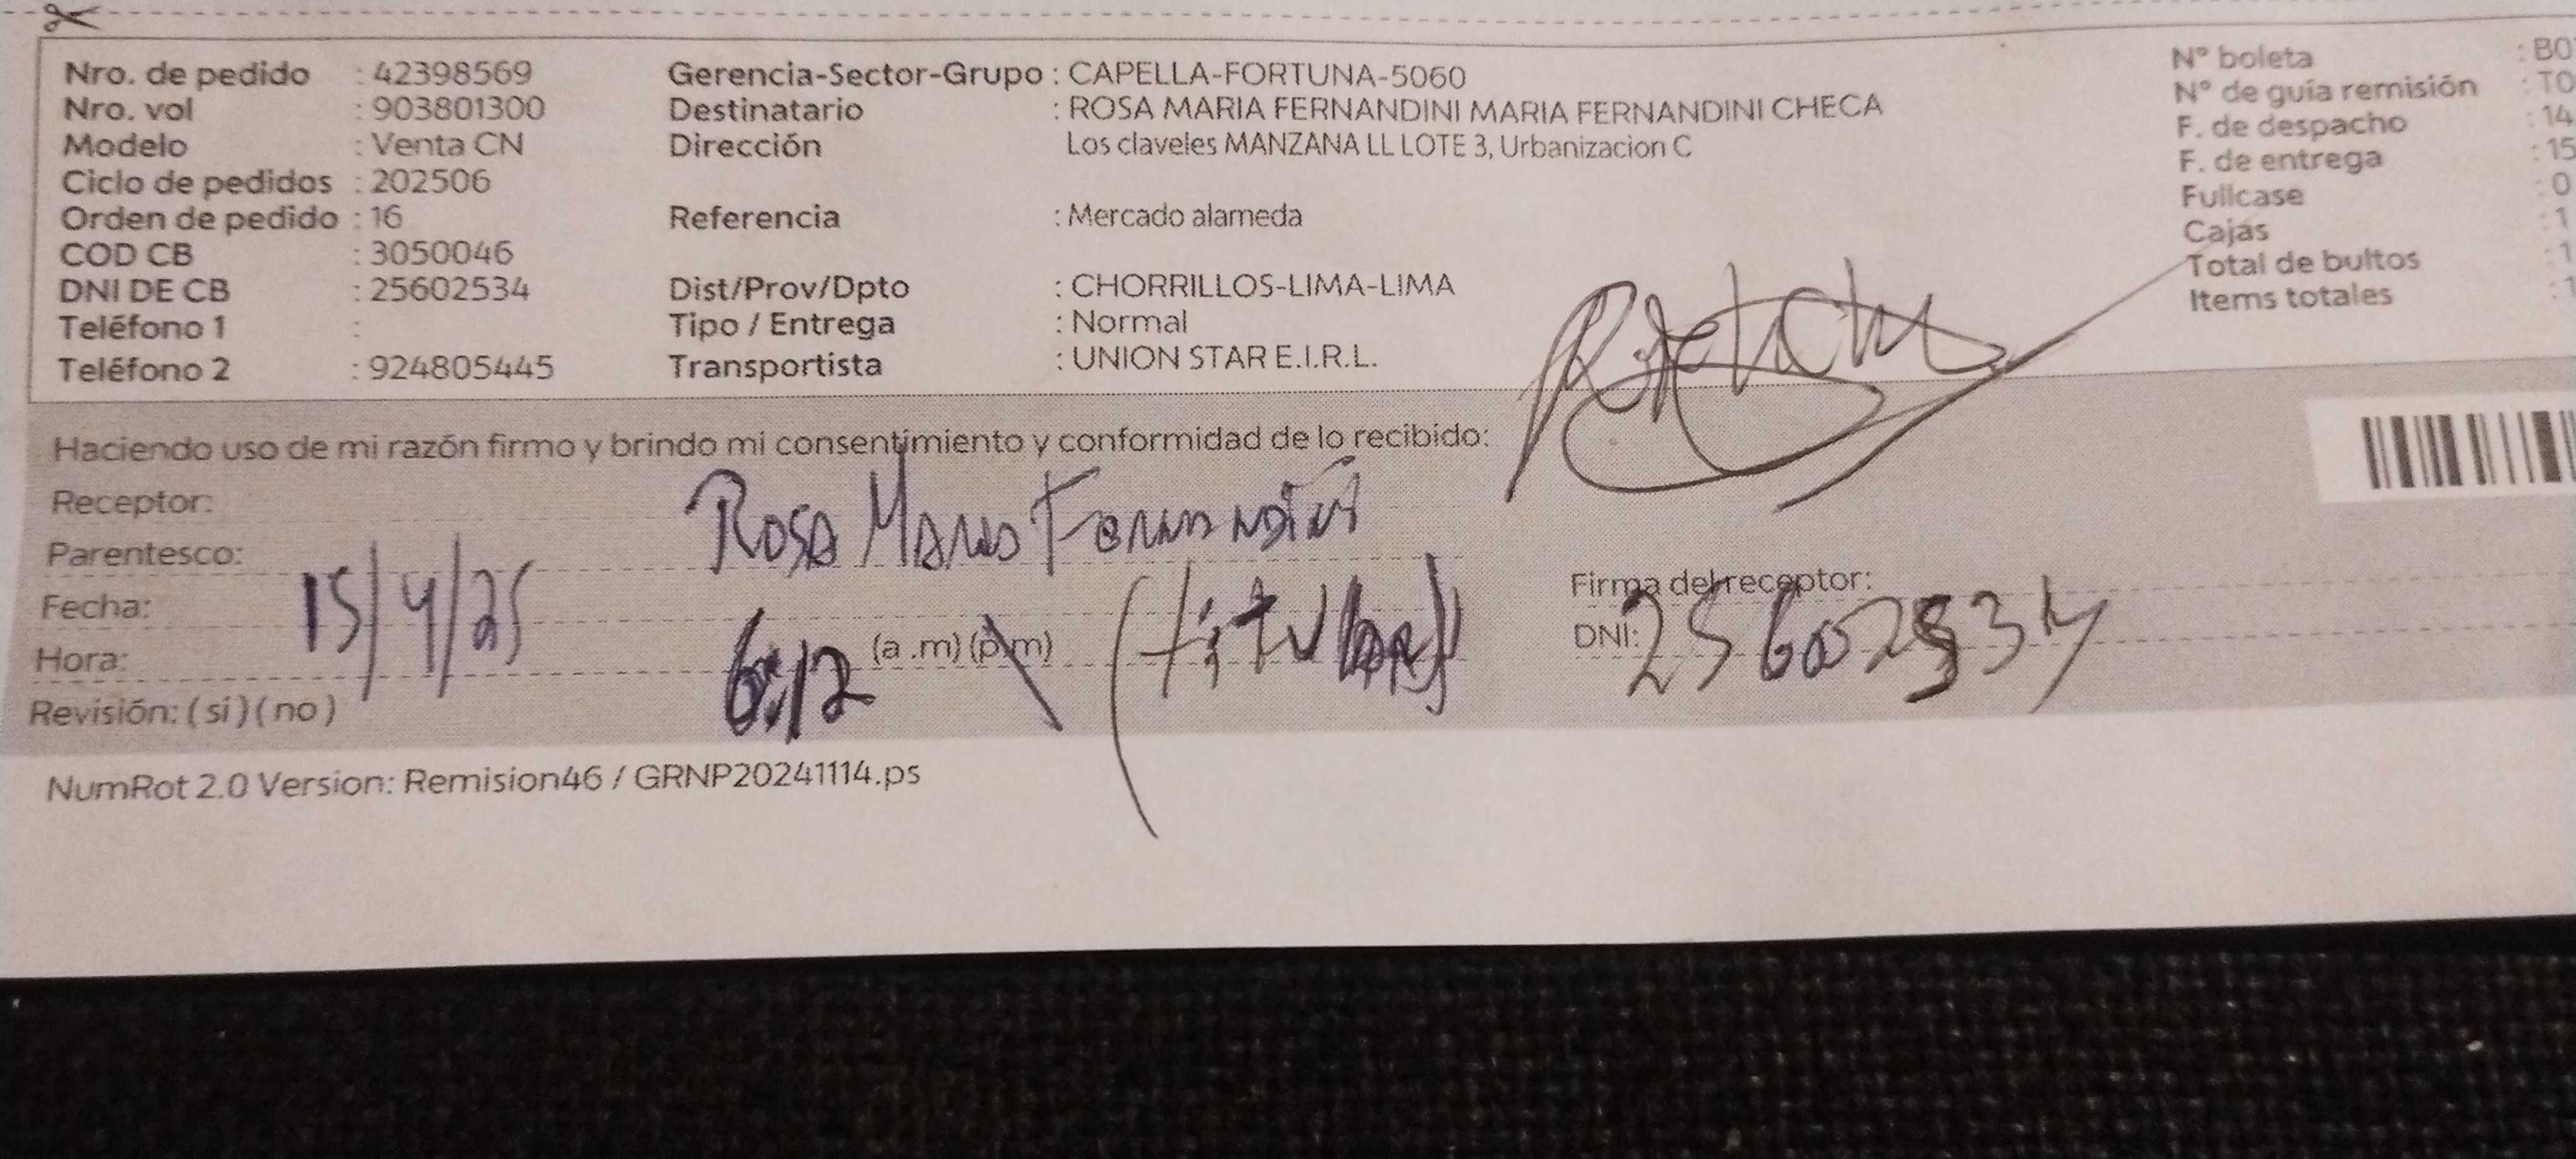 Nro. de pedido : 42398569 Gerencia-Sector-Grupo : CAPELLA-FORTUNA-5060 N° boleta : B0
Nro. vol : 903801300 Destinatario : ROSA MARIA FERNANDINI MARIA FERNANDINI CHECA N° de guía remisión : T0
Modelo : Venta CN Dirección Los claveles MANZANA LL LOTE 3, Urbanizacion C F. de despacho : 14
Ciclo de pedidos : 202506 F. de entrega : 15
Orden de pedido : 16 Referencia : Mercado alameda Fullcase : 0
COD CB : 3050046 Cajas : 1
DNI DE CB : 25602534 Dist/Prov/Dpto : CHORRILLOS-LIMA-LIMA Total de bultos : 1
Teléfono 1 : Tipo / Entrega : Normal Items totales : 1
Teléfono 2 : 924805445 Transportista : UNION STAR E.I.R.L.
Haciendo uso de mi razón firmo y brindo mi consentimiento y conformidad de lo recibido:
Receptor: Rosa Maria Fernandini
Parentesco: (titular) Firma del receptor:
Fecha: 15/4/25 DNI: 25602534
Hora: 6:12 (a .m) (p.m)
Revisión: ( si ) ( no )
NumRot 2.0 Version: Remision46 / GRNP20241114.ps